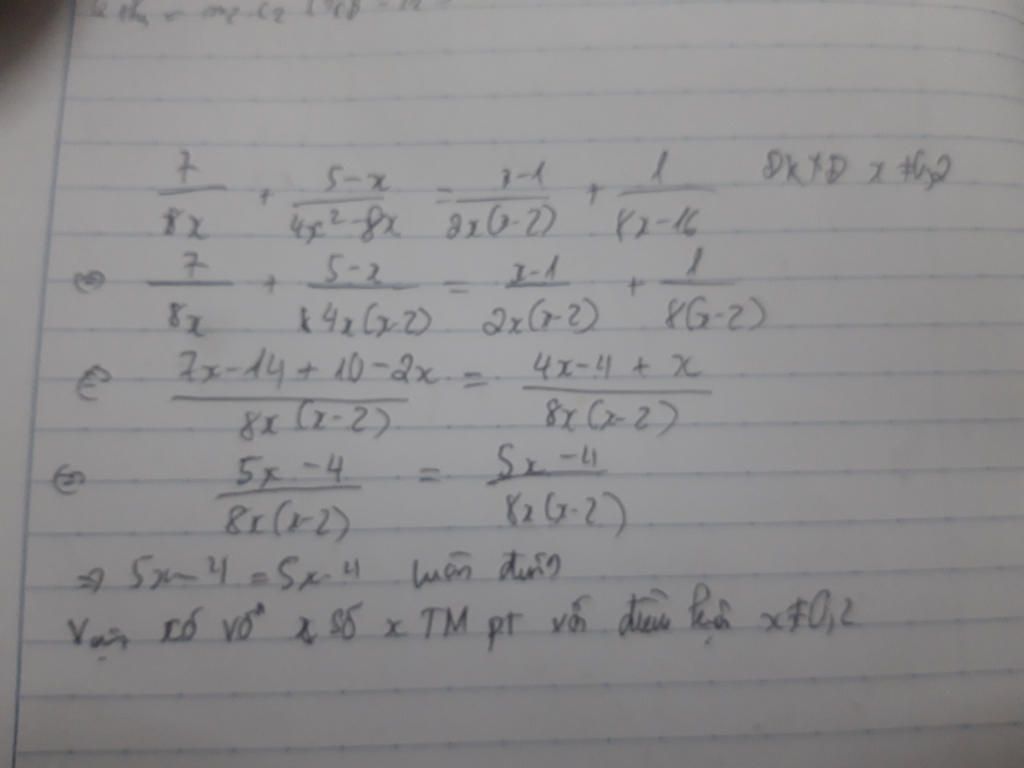 7/8x + 5-x/4x²-8x = x-1/2x(x-2) + 1/8x-16 ĐKXĐ x≠0,2
⇔ 7/8x + 5-x/4x(x-2) = x-1/2x(x-2) + 1/8(x-2)
⇔ 7x-14+10-2x/8x(x-2) = 4x-4+x/8x(x-2)
⇔ 5x-4/8x(x-2) = 5x-4/8x(x-2)
⇒ 5x-4=5x-4 luôn đúng
Vậy vô số x TM pt với điều kiện x≠0,2